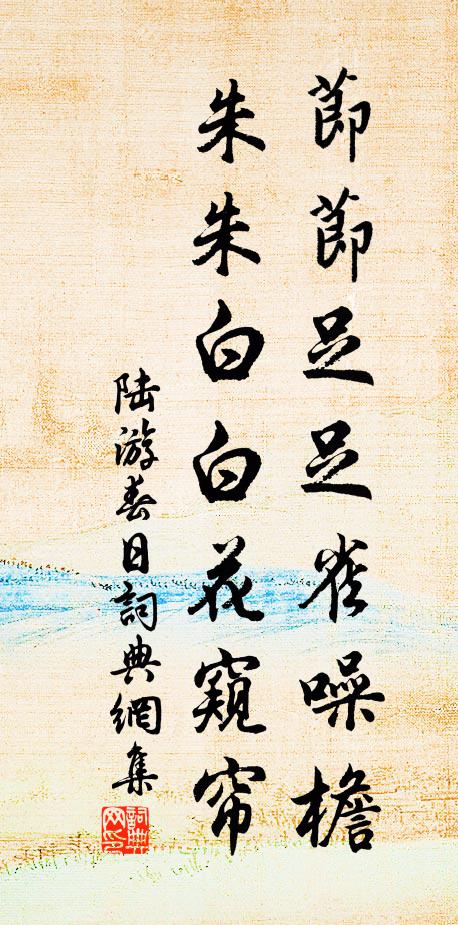 節節足足雀噪檐
朱朱白白花窺帘
陆游春日詞典網集
詞典网印